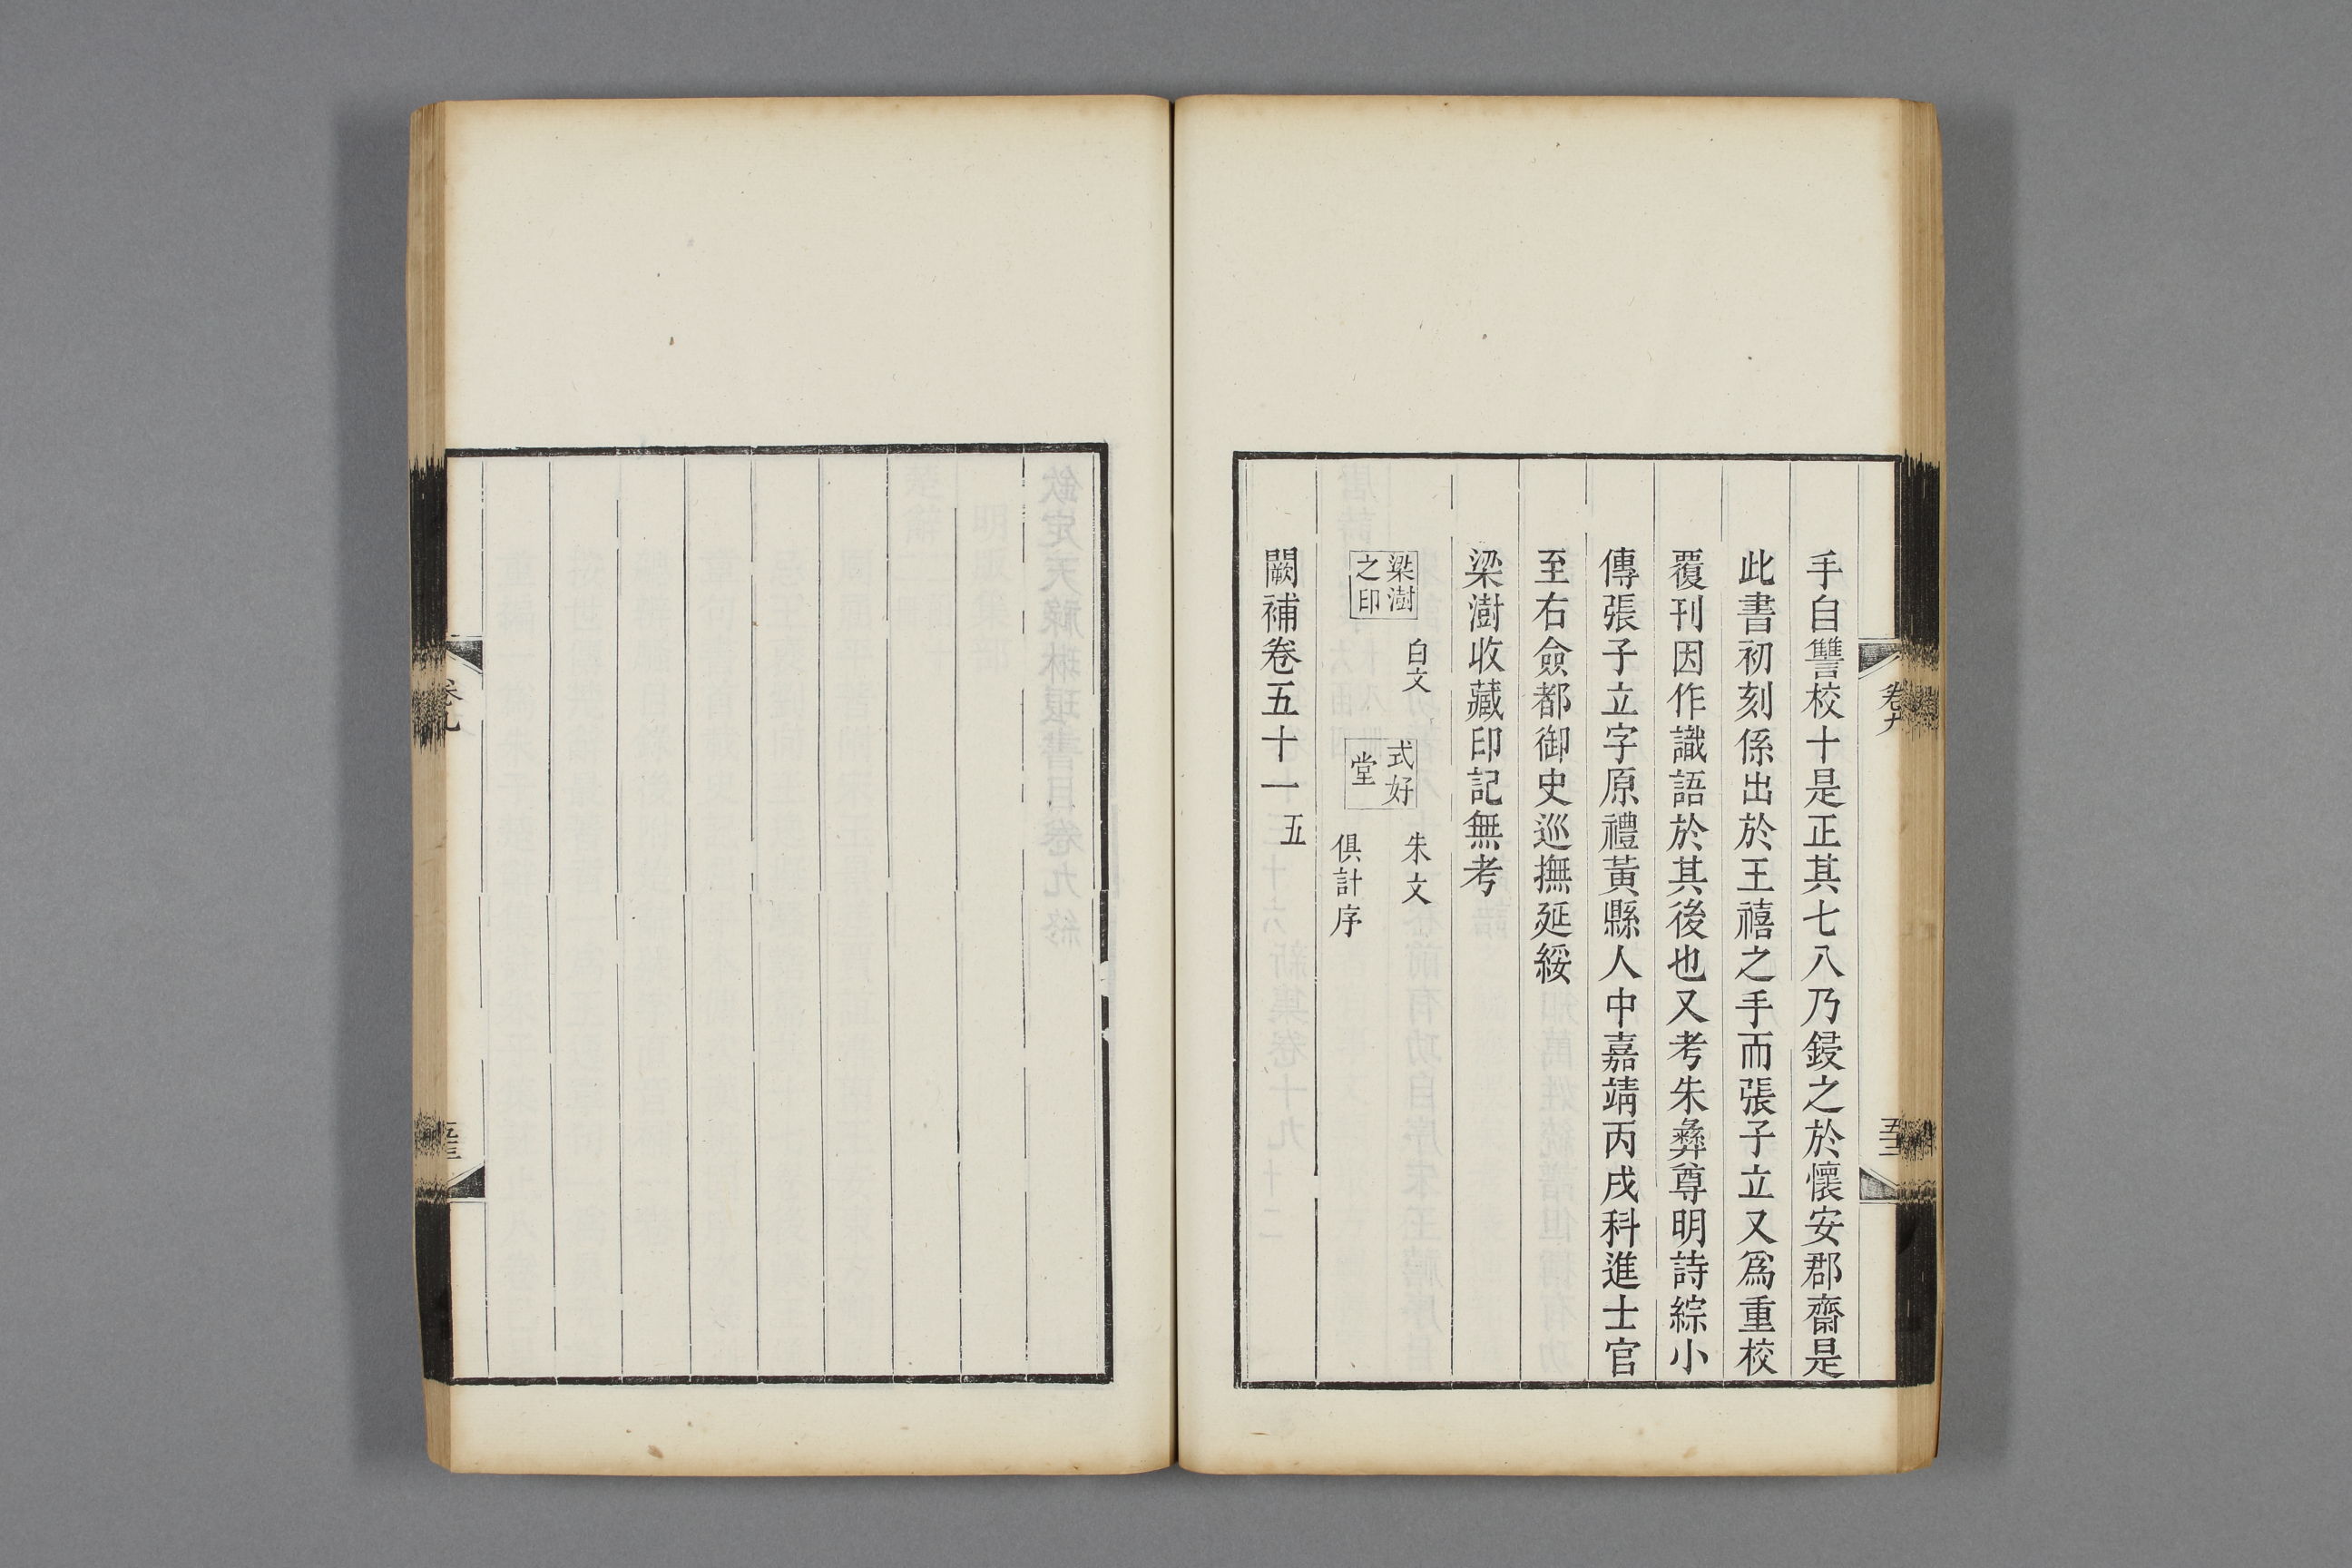 手自讐校十是正其七八乃鋟之於懷安郡齋是
此書初刻係出於王禧之手而張子立又爲重校
覆刊因作識語於其後也又考朱彝尊明詩綜小
傳張子立字原禮黃縣人中嘉靖丙戌科進士官
至右僉都御史巡撫延綏
梁澍收藏印記無考
梁澍之印 白文 式好堂 朱文 俱計序
闕補卷五十一 五
卷九
卷九